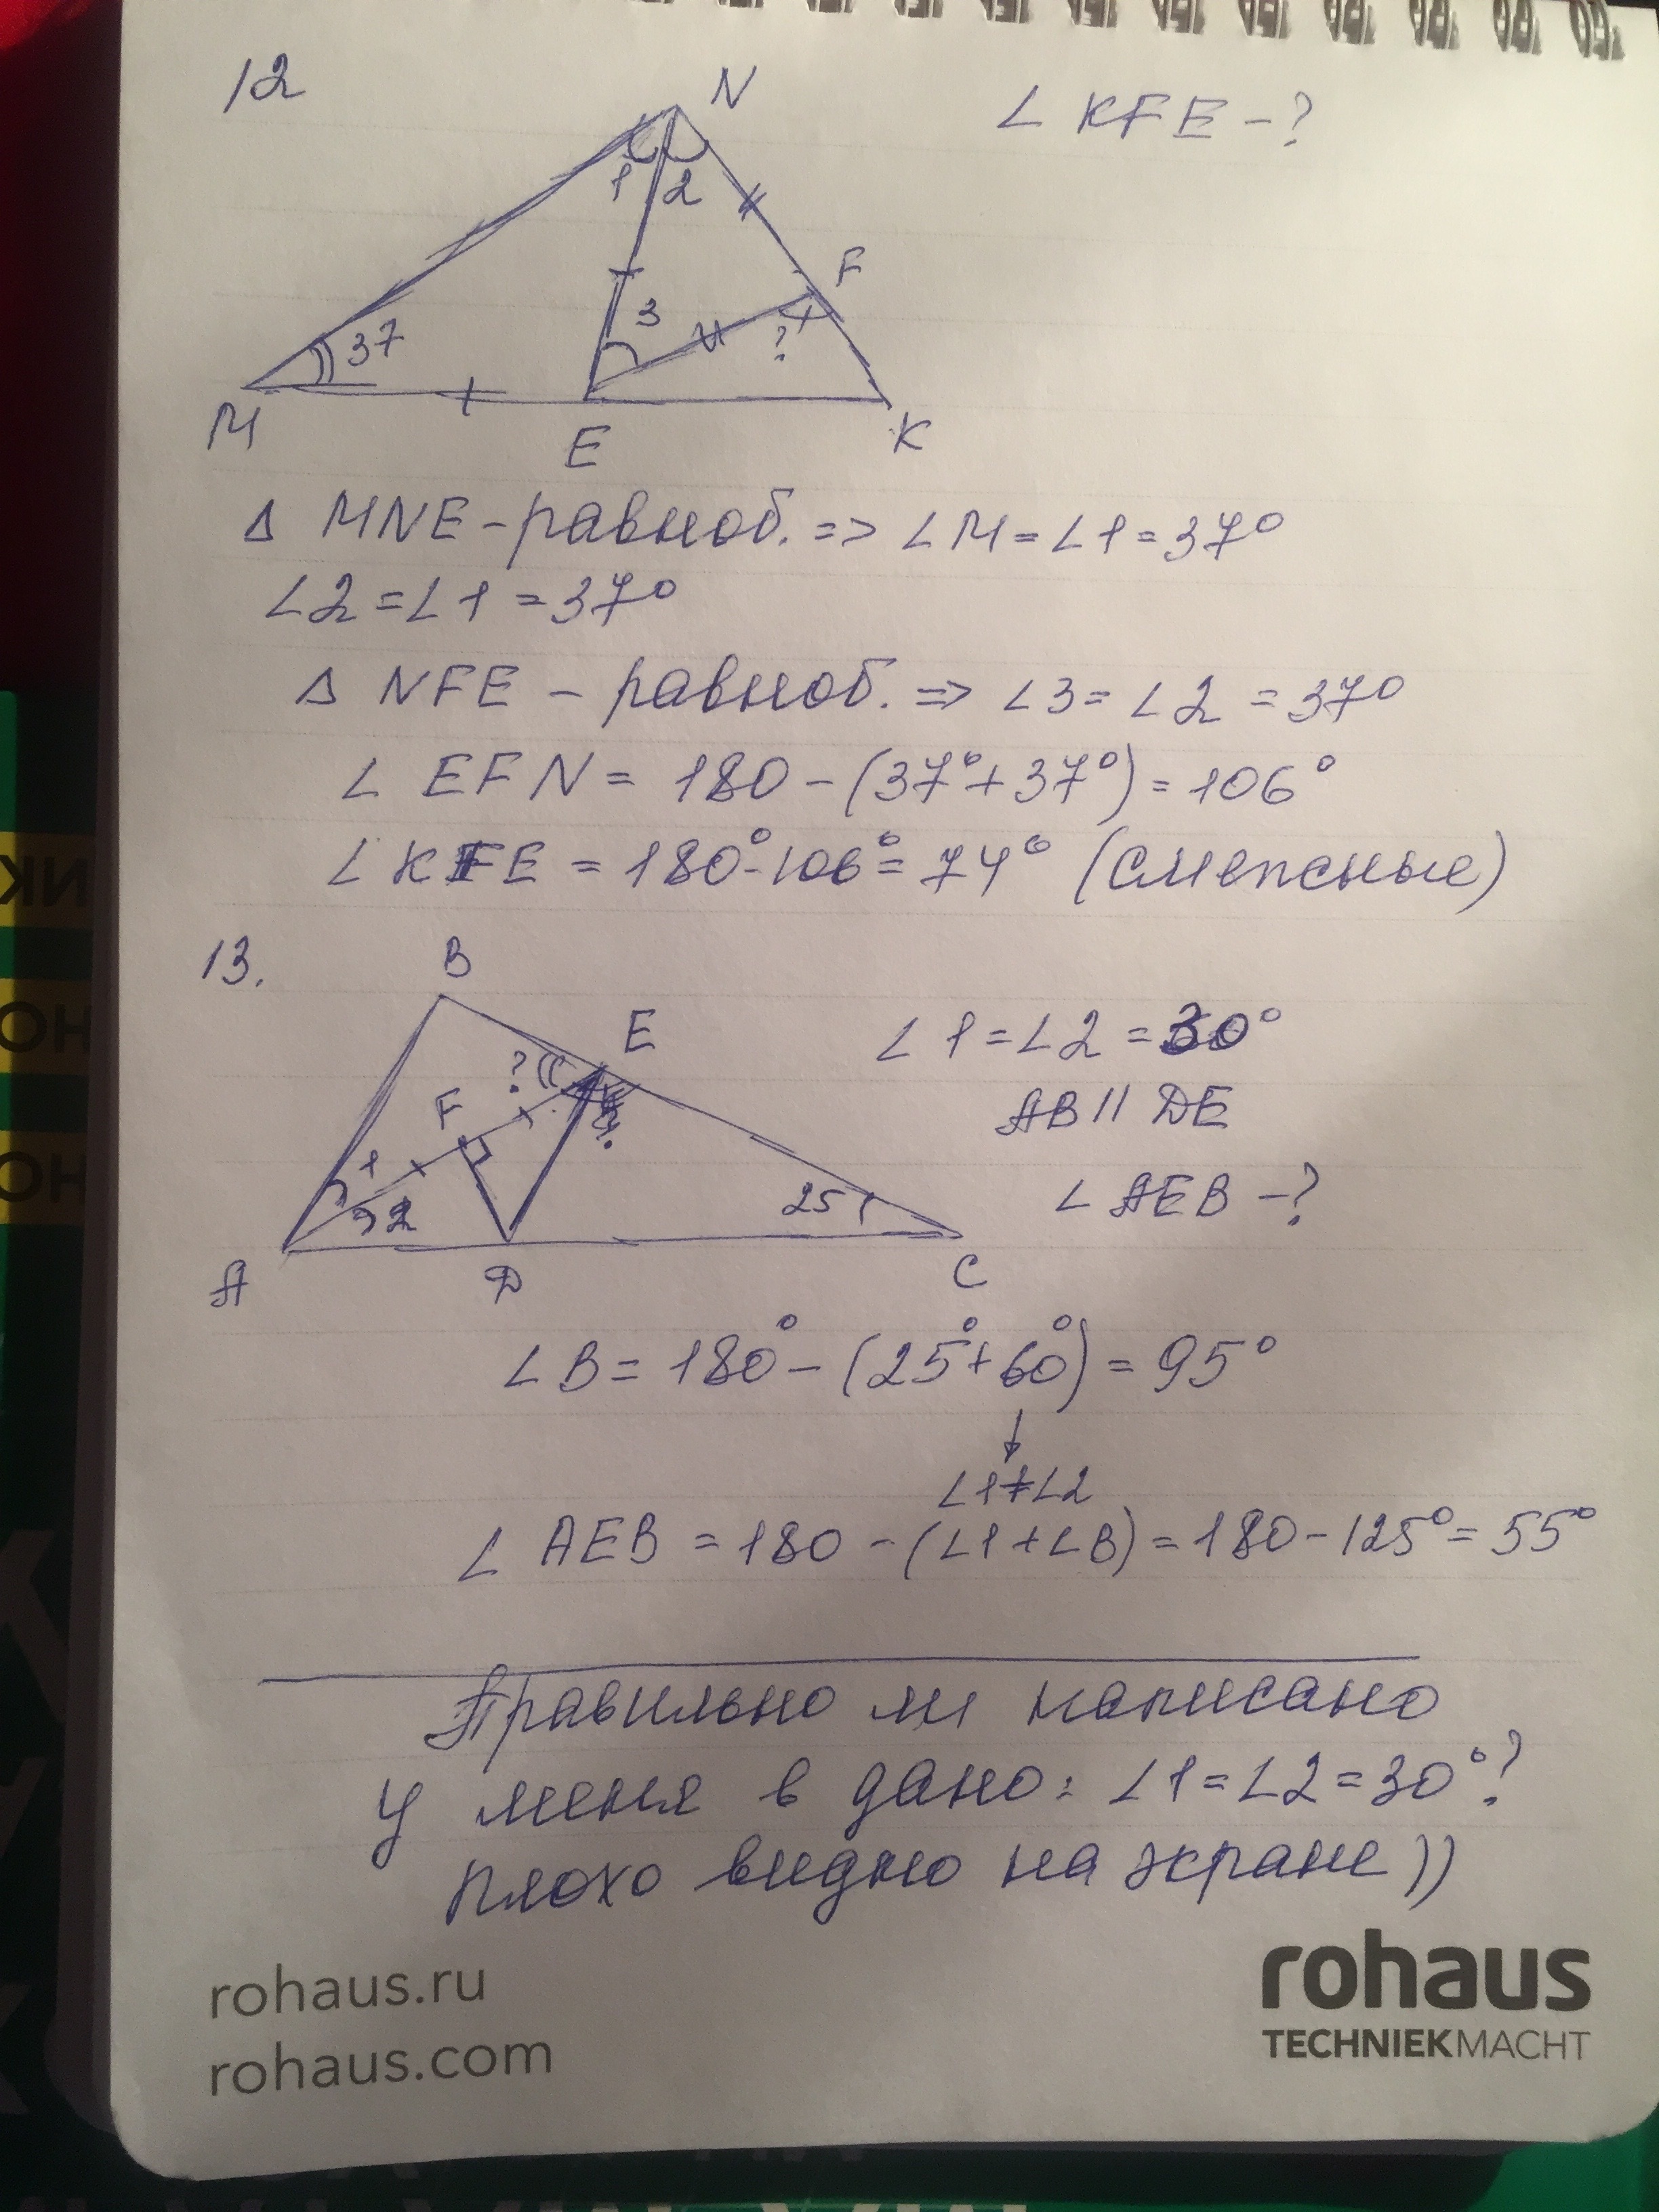 12
∠ KFE - ?
N
1 2
F
3
37
?
M
E
K
Δ MNE - равноб. => ∠M = ∠1 = 37°
∠2 = ∠1 = 37°
Δ NFE - равноб. => ∠3 = ∠2 = 37°
∠ EFN = 180 - (37° + 37°) = 106°
∠ KFE = 180° - 106° = 74° (смежные)
13.
B
E
∠1 = ∠2 = 30°
?
AB || DE
F
?
∠ AEB - ?
1
2
25
A
D
C
∠B = 180° - (25° + 60°) = 95°
↓
∠1+∠2
∠ AEB = 180 - (∠1 + ∠B) = 180 - 125° = 55°
Правильно ли написано
у меня в дано: ∠1 = ∠2 = 30°?
плохо видно на экране))
rohaus.ru
rohaus.com
rohaus
TECHNIEKMACHT